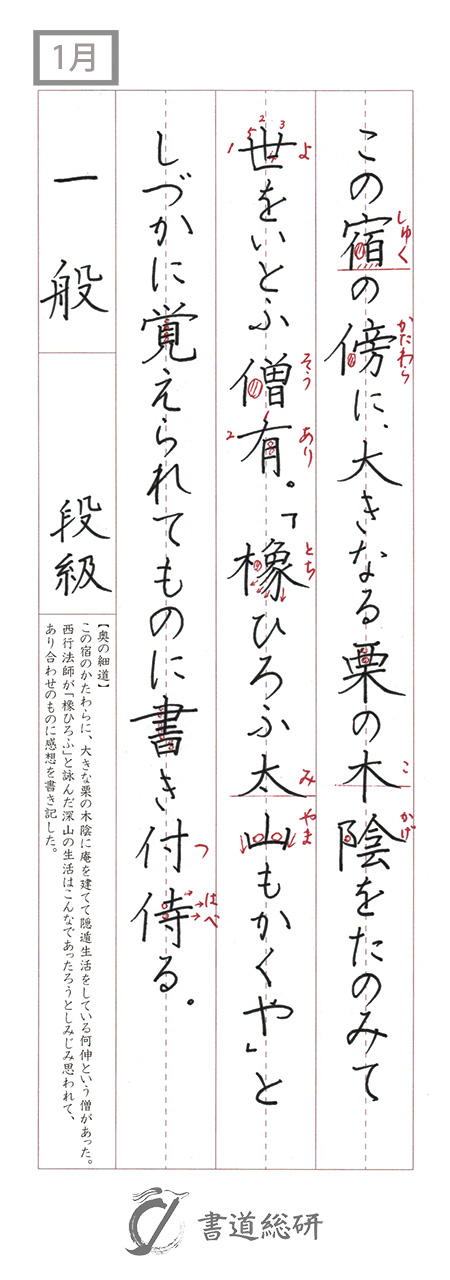 1月
この宿の傍に、大きなる栗の木陰をたのみて
しゅく
かたわら
こ
かげ
世をいとふ僧有。「橡ひろふ太山もかくや」と
よ
そう
あり
とち
み
やま
1 2 3 4 5
1 2
しづかに覚えられてものに書き付侍る。
つ
はべ
一般
段級
【奥の細道】
この宿のかたわらに、大きな栗の木陰に庵を建てて隠遁生活をしている何伸という僧があった。
西行法師が「橡ひろふ」と詠んだ深山の生活はこんなであったろうとしみじみ思われて、
あり合わせのものに感想を書き記した。
書道総研